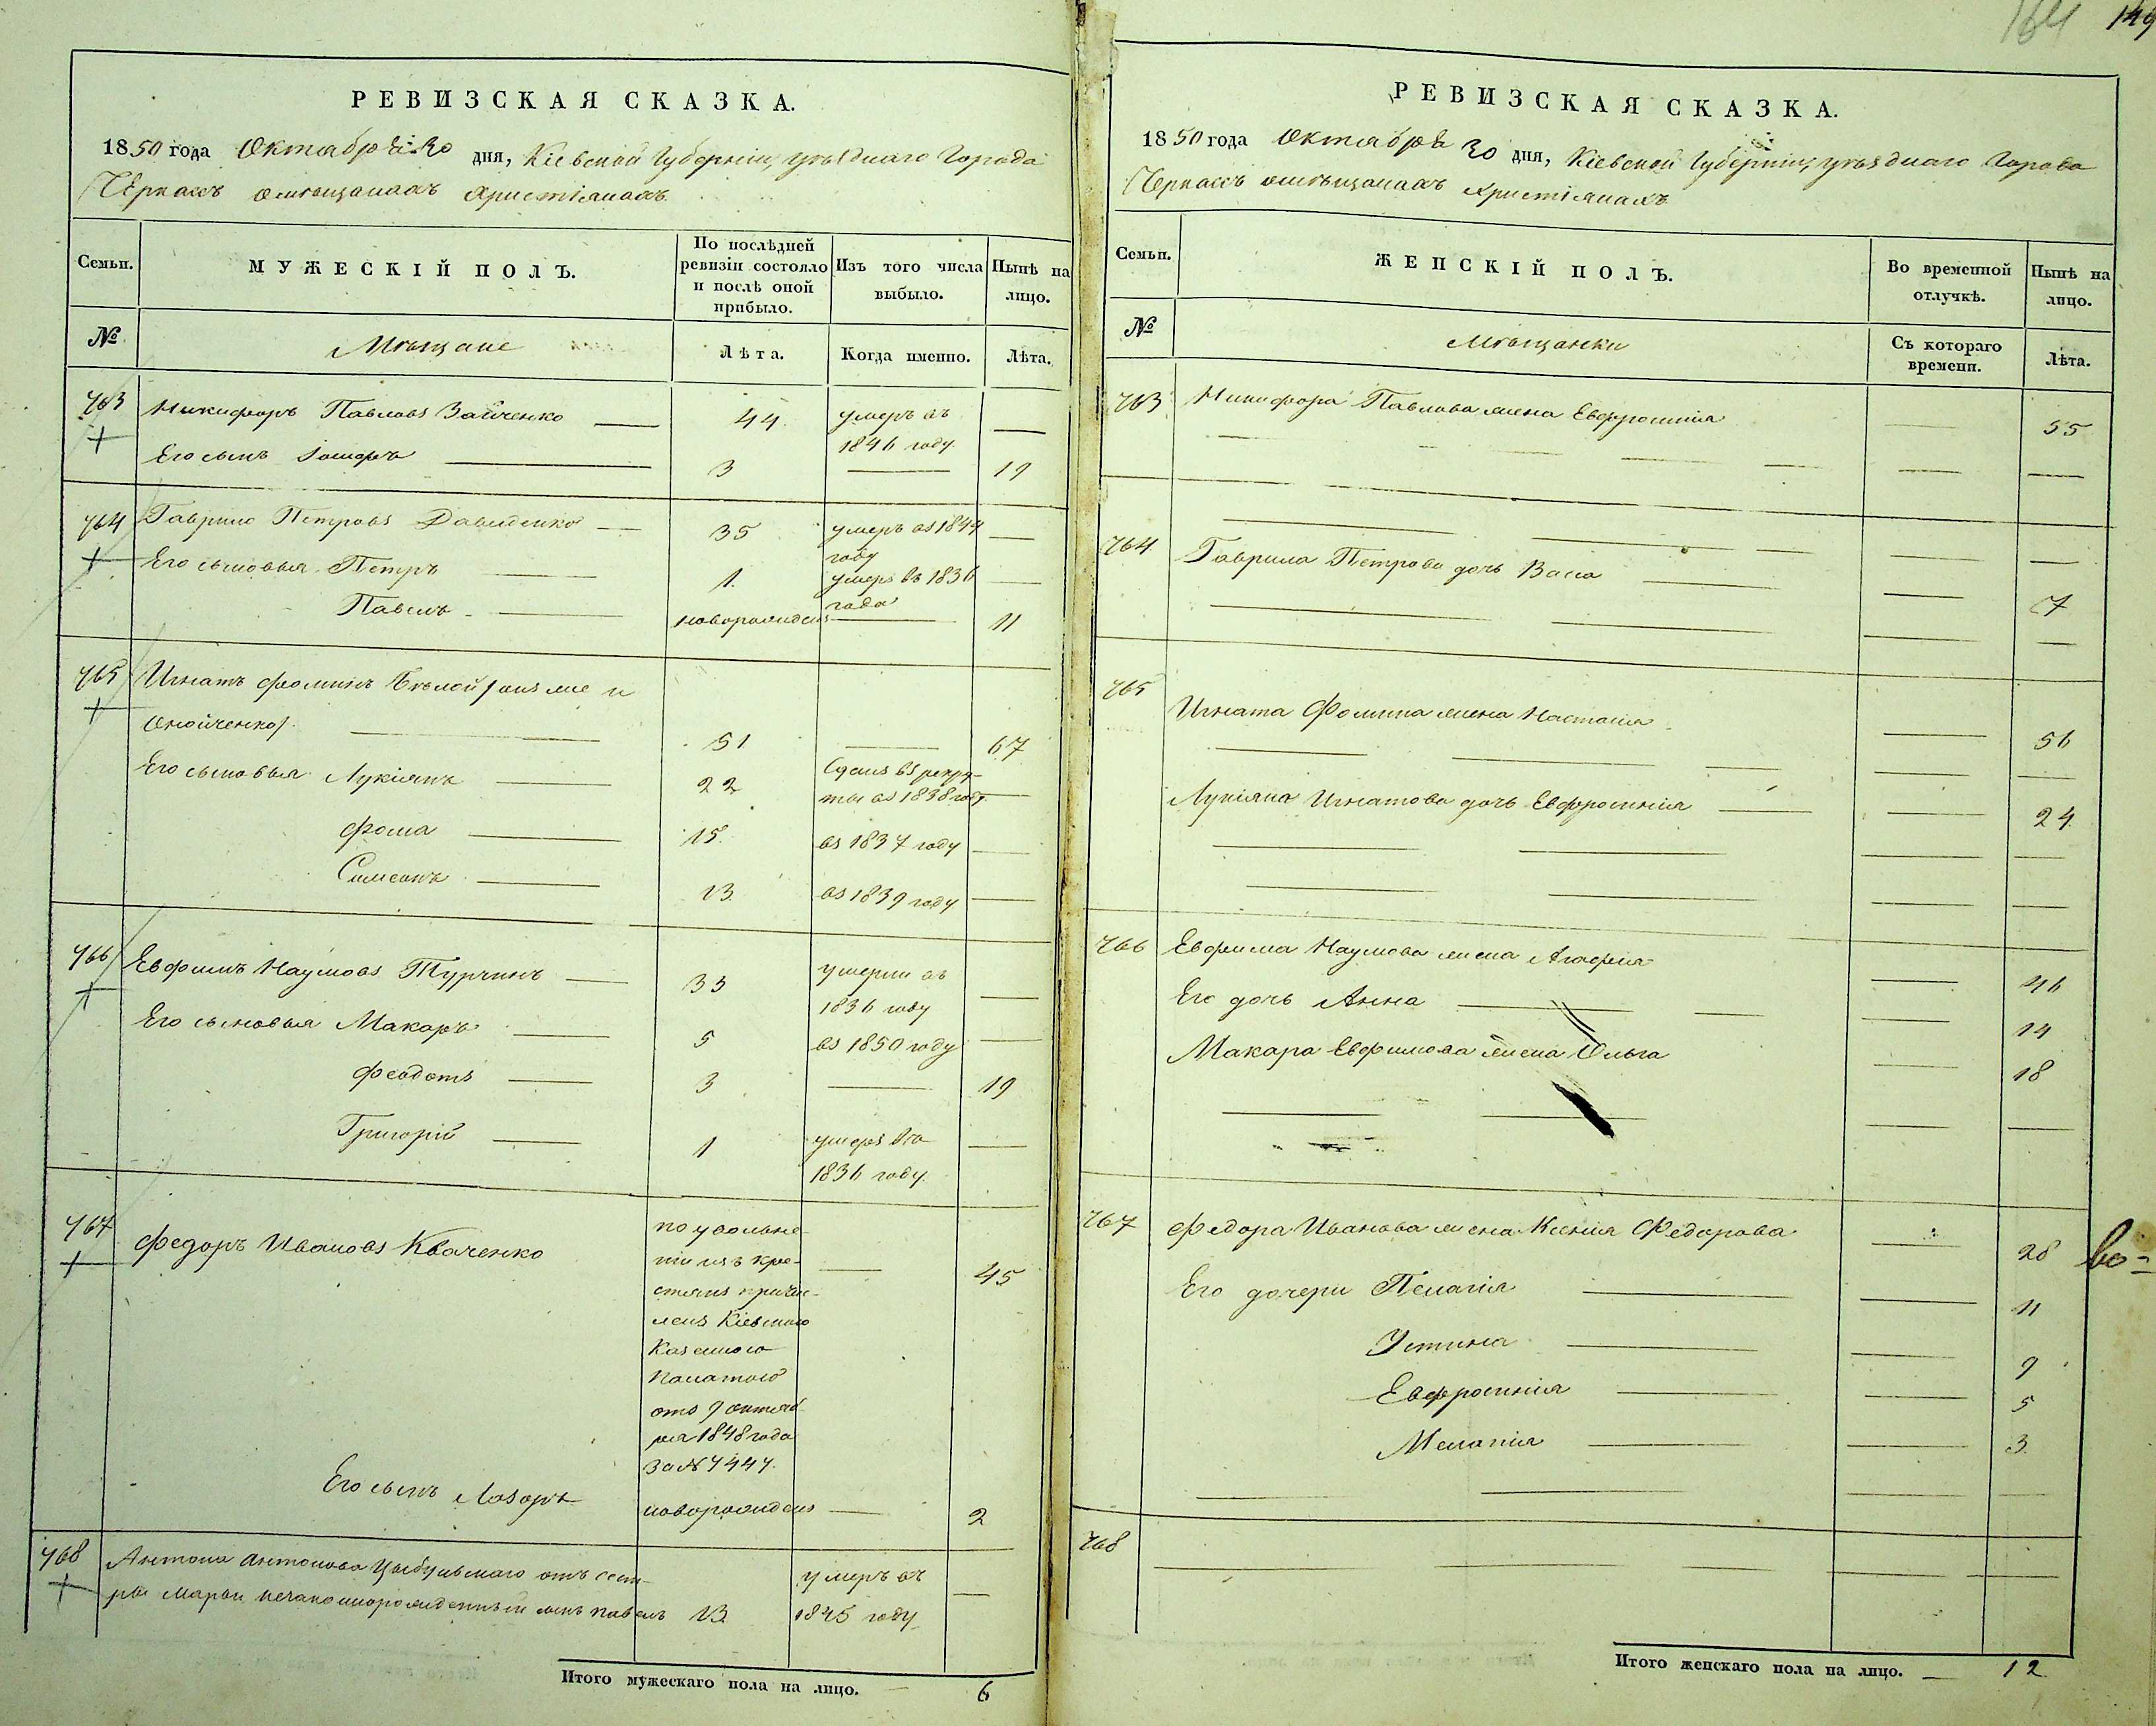 164 149
РЕВИЗСКАЯ СКАЗКА.
1850 года Октября 30 дня, Кіевской Губерніи, уѣзднаго Города
Черкасъ омѣщанахъ христіанахъ.
Семьи.
МУЖЕСКІЙ ПОЛЪ.
По послѣдней ревизіи состояло и послѣ оной прибыло.
Изъ того числа выбыло.
Нынѣ на лицо.
№
Мѣщане
Лѣта.
Когда именно.
Лѣта.
763 Никифоръ Павловъ Зайченко 44 умеръ въ 1846 году
Его сынъ Іосифъ 3 19
764 Гаврило Петровъ Давиденко 35 умеръ въ 1844 году
Его сыновья Петръ 1. умеръ въ 1836 года
Павелъ новорожденъ 11
765 Игнатъ Фоминъ Бѣлой (онъ же и
Онойченко) 51 67
Его сыновья Лукіянъ 22 Сданъ въ рекру-
ты въ 1838 году
Фома 15 въ 1837 году
Симеонъ 13 въ 1839 году
766 Евфимъ Наумовъ Турчинъ 33 умерли въ 1836 году
Его сыновья Макаръ 5 въ 1850 году
Феодотъ 3 19
Григорій 1 умеръ въ 1836 году.
767 Федоръ Ивановъ Кваченко 45
по увольне-
ніи изъ кре-
стьянъ причи-
ленъ Кіевскою
Казенною
Палатою
отъ 9 октяб-
ря 1848 года
За № 7447.
Его сынъ Лазоръ новорожденъ 2
768 Антона Антонова Цыбульскаго отъ сест-
ры Марьи незаконнорожденный сынъ Павелъ 13 умеръ въ 1845 году
Итого мужескаго пола на лицо. 6
РЕВИЗСКАЯ СКАЗКА.
1850 года Октября 30 дня, Кіевской Губерніи, уѣзднаго Города
Черкасъ омѣщанахъ Христіанахъ
Семьи.
ЖЕНСКІЙ ПОЛЪ.
Во временной отлучкѣ.
Нынѣ на лицо.
№
Мѣщанки
Съ котораго времени.
Лѣта.
763 Никифора Павлова жена Евфросинія 55
764 Гаврила Петрова дочь Васса 7
765 Игната Фомина жена Настасія 56
Лукіяна Игнатова дочь Евфросинія 24
766 Евфима Наумова жена Агафія 46
Его дочь Анна 14
Макара Евфимова жена Ольга 18
767 Федора Иванова жена Ксенія Федорова 28
Его дочери Пелагія 11
Устина 9
Евфросинія 5
Меланія 3
768
Итого женскаго пола на лицо. 12